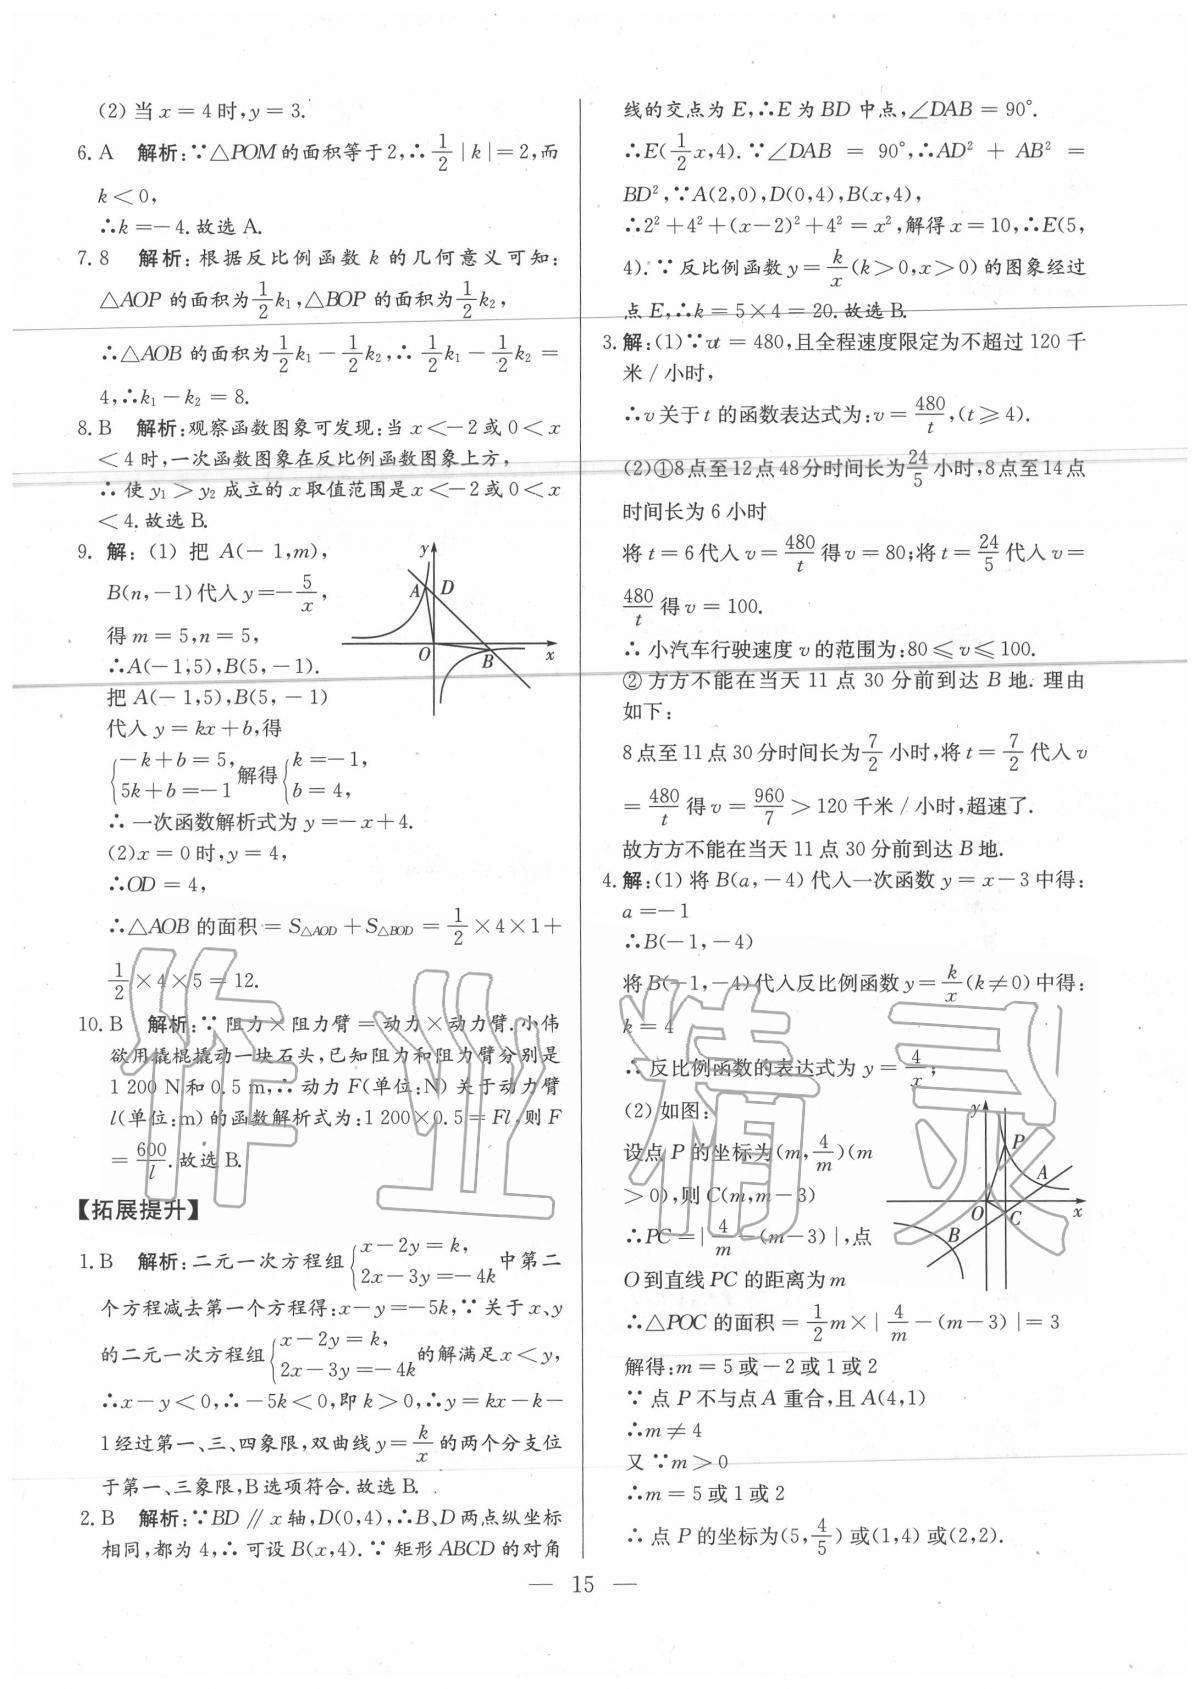 (2) 当 x = 4 时, y = 3.
6. A 解析:∵△POM 的面积等于 2,∴ 1/2 |k| = 2,而
k < 0,
∴k =− 4. 故选 A.
7. 8 解析: 根据反比例函数 k 的几何意义可知:
△AOP 的面积为 1/2 k₁,△BOP 的面积为 1/2 k₂,
∴△AOB 的面积为 1/2 k₁ − 1/2 k₂,∴ 1/2 k₁ − 1/2 k₂ =
4,∴k₁ − k₂ = 8.
8. B 解析:观察函数图象可发现:当 x <− 2 或 0 < x
< 4 时,一次函数图象在反比例函数图象上方,
∴ 使 y₁ > y₂ 成立的 x 取值范围是 x <− 2 或 0 < x
< 4. 故选 B.
9. 解: (1) 把 A(− 1,m),
B(n,−1)代入 y =− 5/x ,
得 m = 5,n = 5,
∴A(−1,5),B(5,−1).
把 A(− 1,5),B(5,− 1)
代入 y = kx + b,得
{−k + b = 5, 5k + b =− 1 解得 {k =− 1, b = 4,
∴ 一次函数解析式为 y =− x + 4.
(2)x = 0 时,y = 4,
∴OD = 4,
∴△AOB 的面积 = S△AOD + S△BOD = 1/2 × 4 × 1 +
1/2 × 4 × 5 = 12.
y A D O B x
10. B 解析:∵ 阻力 × 阻力臂 = 动力 × 动力臂.小伟
欲用撬棍撬动一块石头,已知阻力和阻力臂分别是
1 200 N 和 0.5 m,∴ 动力 F(单位:N) 关于动力臂
l(单位:m) 的函数解析式为:1 200 × 0.5 = Fl,则 F
= 600/l . 故选 B.
【拓展提升】
1. B 解析:二元一次方程组 {x − 2y = k, 2x − 3y =− 4k 中第二
个方程减去第一个方程得:x − y =− 5k,∵ 关于 x、y
的二元一次方程组 {x − 2y = k, 2x − 3y =− 4k 的解满足 x < y,
∴x − y < 0,∴ − 5k < 0,即 k > 0,∴y = kx − k −
1 经过第一、三、四象限,双曲线 y = k/x 的两个分支位
于第一、三象限,B 选项符合. 故选 B.
2. B 解析:∵BD ∥ x 轴,D(0,4),∴B、D 两点纵坐标
相同,都为 4,∴ 可设 B(x,4). ∵ 矩形 ABCD 的对角
线的交点为 E,∴E 为 BD 中点,∠DAB = 90°.
∴E(1/2 x,4). ∵∠DAB = 90°,∴AD² + AB² =
BD²,∵A(2,0),D(0,4),B(x,4),
∴2² + 4² + (x − 2)² + 4² = x²,解得 x = 10,∴E(5,
4). ∵ 反比例函数 y = k/x (k > 0,x > 0) 的图象经过
点 E,∴k = 5 × 4 = 20. 故选 B.
3. 解:(1)∵vt = 480,且全程速度限定为不超过 120 千
米 / 小时,
∴v 关于 t 的函数表达式为:v = 480/t ,(t ⩾ 4).
(2)①8 点至 12 点 48 分时间长为 24/5 小时,8 点至 14 点
时间长为 6 小时
将 t = 6 代入 v = 480/t 得 v = 80;将 t = 24/5 代入 v =
480/t 得 v = 100.
∴ 小汽车行驶速度 v 的范围为:80 ⩽ v ⩽ 100.
② 方方不能在当天 11 点 30 分前到达 B 地. 理由
如下:
8 点至 11 点 30 分时间长为 7/2 小时,将 t = 7/2 代入 v
= 480/t 得 v = 960/7 > 120 千米 / 小时,超速了.
故方方不能在当天 11 点 30 分前到达 B 地.
4. 解:(1) 将 B(a,− 4) 代入一次函数 y = x − 3 中得:
a =− 1
∴B(− 1,− 4)
将 B(−1,−4) 代入反比例函数 y = k/x (k ≠ 0) 中得:
k = 4
∴ 反比例函数的表达式为 y = 4/x ;
(2) 如图:
设点 P 的坐标为 (m, 4/m)(m
> 0),则 C(m,m − 3)
∴PC = | 4/m − (m − 3) |,点
O 到直线 PC 的距离为 m
y P A O C x B
∴△POC 的面积 = 1/2 m × | 4/m − (m − 3) | = 3
解得:m = 5 或 − 2 或 1 或 2
∵ 点 P 不与点 A 重合,且 A(4,1)
∴m ≠ 4
又 ∵m > 0
∴m = 5 或 1 或 2
∴ 点 P 的坐标为 (5, 4/5) 或 (1,4) 或 (2,2).
— 15 —
作业精灵